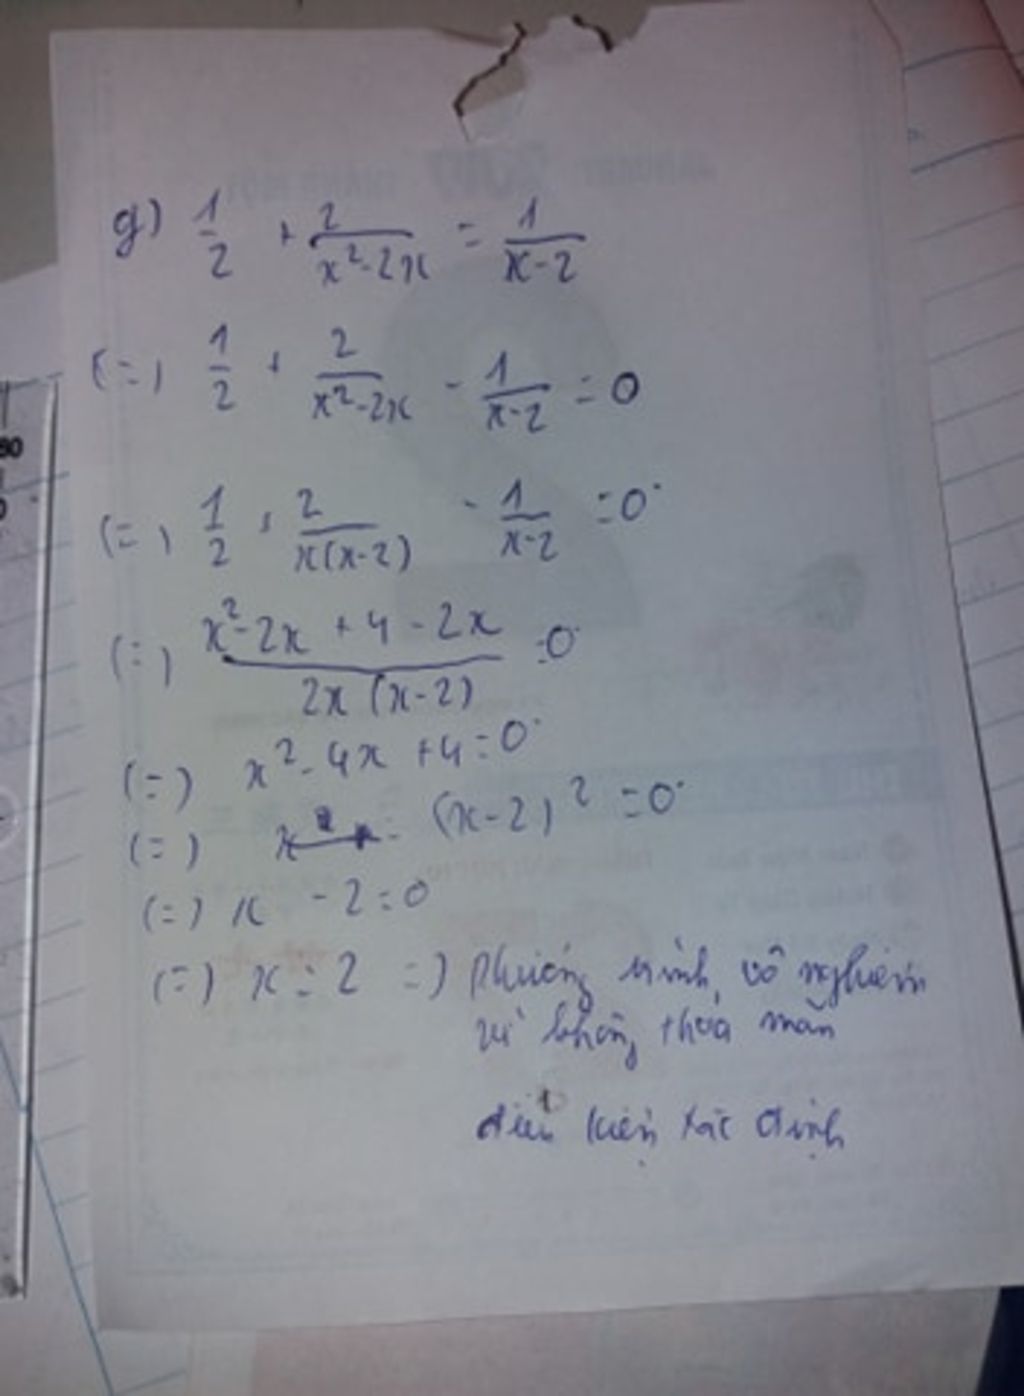 g) 1/2 + 2/(x²-2x) = 1/(x-2)
(=) 1/2 + 2/(x²-2x) - 1/(x-2) = 0
(=) 1/2 + 2/(x(x-2)) - 1/(x-2) = 0
(=) (x²-2x + 4 - 2x)/(2x(x-2)) = 0
(=) x² - 4x + 4 = 0
(=) (x-2)² = 0
(=) x - 2 = 0
(=) x = 2 =) Phương trình vô nghiệm
vì không thỏa mãn
điều kiện xác định
JANUARY 2017 THÁNG MỘT
80